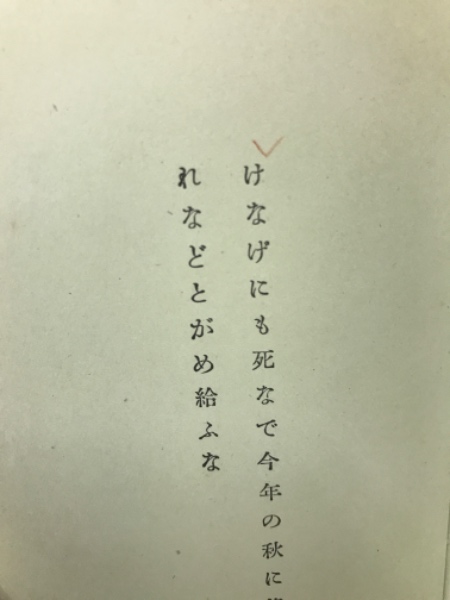 けなげにも死なで今年の秋に
れなどとがめ給ふな